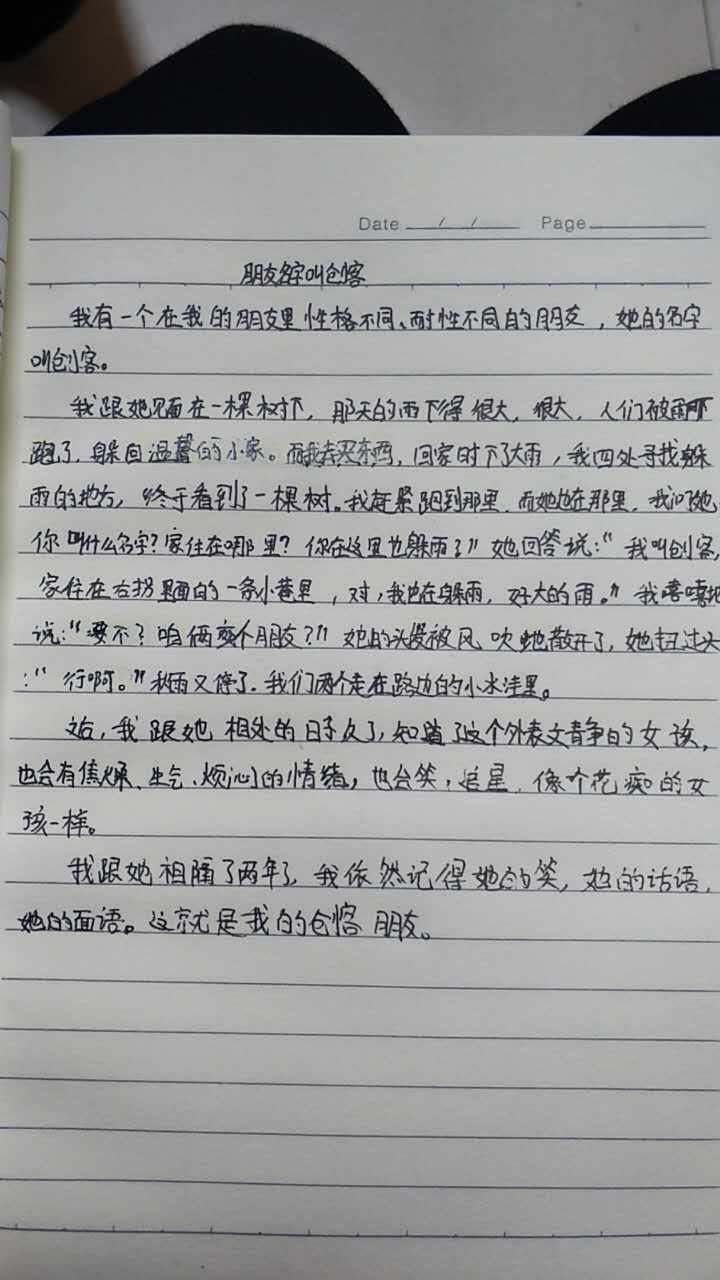 Date / / Page
朋友名字叫创客
我有一个在我的朋友里性格不同、耐性不同的朋友，她的名字
叫创客。
我跟她见面在一棵树下，那天的雨下得很大，很大，人们被雨吓
跑了，躲回温馨的小家。而我去买东西，回家时下了大雨，我四处寻找躲
雨的地方，终于看到了一棵树。我赶紧跑到那里，而她也在那里，我问她：
你叫什么名字？家住在哪里？你在这里也躲雨？” 她回答说：“我叫创客，
家住在右拐里面的一条小巷里，对，我也在躲雨，好大的雨。” 我嘻嘻地
说：“要不？咱俩交个朋友？” 她的头发被风吹地散开了，她扭过头
：“行啊。” 秋雨又停了，我们两个走在路边的小水洼里。
之后，我跟她相处的日子久了，知道了这个外表文静的女孩，
也会有焦燥、生气、烦心的情绪，也会笑，追星，像个花痴的女
孩一样。
我跟她相隔了两年了，我依然记得她的笑，她的话语，
她的面语。这就是我的创客朋友。